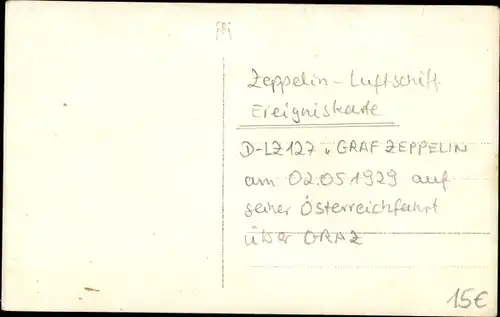 Zeppelin - Luftschiff
Ereigniskarte
D-LZ127 " GRAF ZEPPELIN
am 02.05 1929 auf
seiner Österreichfahrt
über GRAZ
15€